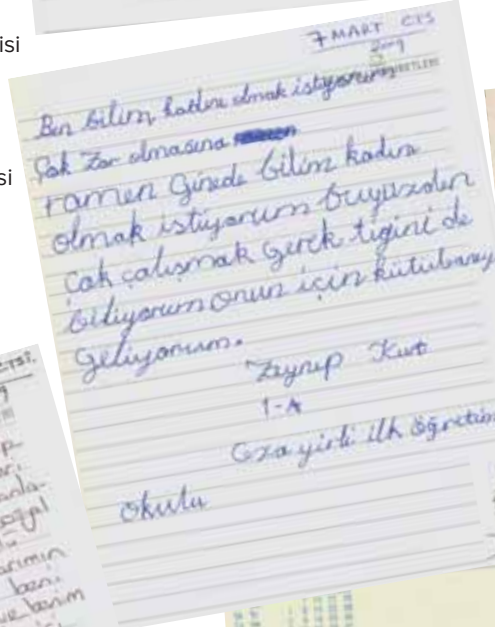 isi
si
7 MART CTS
2009
Ben bilim kadını olmak istiyorum
Çok zor olmasına
ramen Ginede bilim kadını
olmak istiyorum buyüzden
Çok çalışmak Gerek tiğini de
biliyorum onun için kütübaney
Geliyorum.
Zeynep Kurt
1-A
öğretim
ilk
okulu
arımın
beni
ve benim